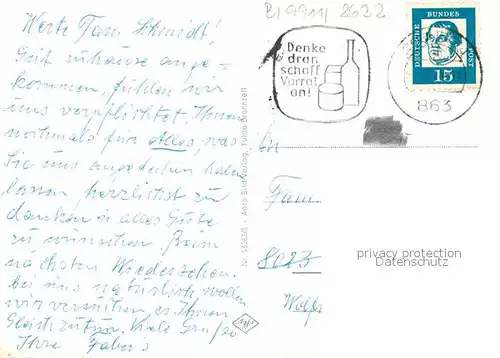 Werte Fam Schmidt!
Gut zuhause ange-
kommen, fühlen wir
uns verpflichtet Ihnen
nochmals für Alles, was
Sie uns angedeihen haben
lassen, herzlichst zu
danken u alles Gute
zu wünschen. Beim
nächsten Wiedersehen
bei uns natürlich wollen
wir versuchen es Ihnen
Gleichzutun. Viele Grüße
Ihre Faber's
B19911/ 8632
Denke
dran,
schaff
Vorrat
an!
DEUTSCHE BUNDESPOST
15
863
Fam
8023
privacy protection
Datenschutz